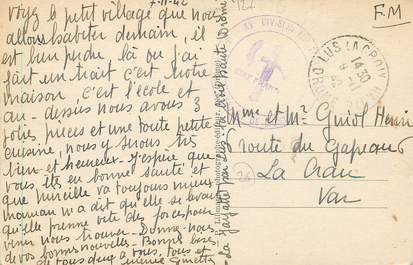 7-11-42
voyez le petit village que nous
allons habiter demain, il
est bien perdu là où j'ai
fait un trait c'est notre
maison, c'est l'école et
au-dessus nous avons 3
jolies pièces et une toute petite
cuisine, nous y serons très
bien et heureux. J'espère que
vous êtes en bonne santé et
que Mireille va toujours mieux
maman m'a dit qu'elle se
qu'elle prenne vite des forces pour
venir nous trouver - Donne-nous
de vos bonnes nouvelles - Bons
de tous deux à vous, tous et
Ginette
FM
XVe DIVISION
LUS LA CROIX
14 30
9 -11
DRÔME
Mme et Mr Guiol Henri
route du Gapeau
La Crau
Var